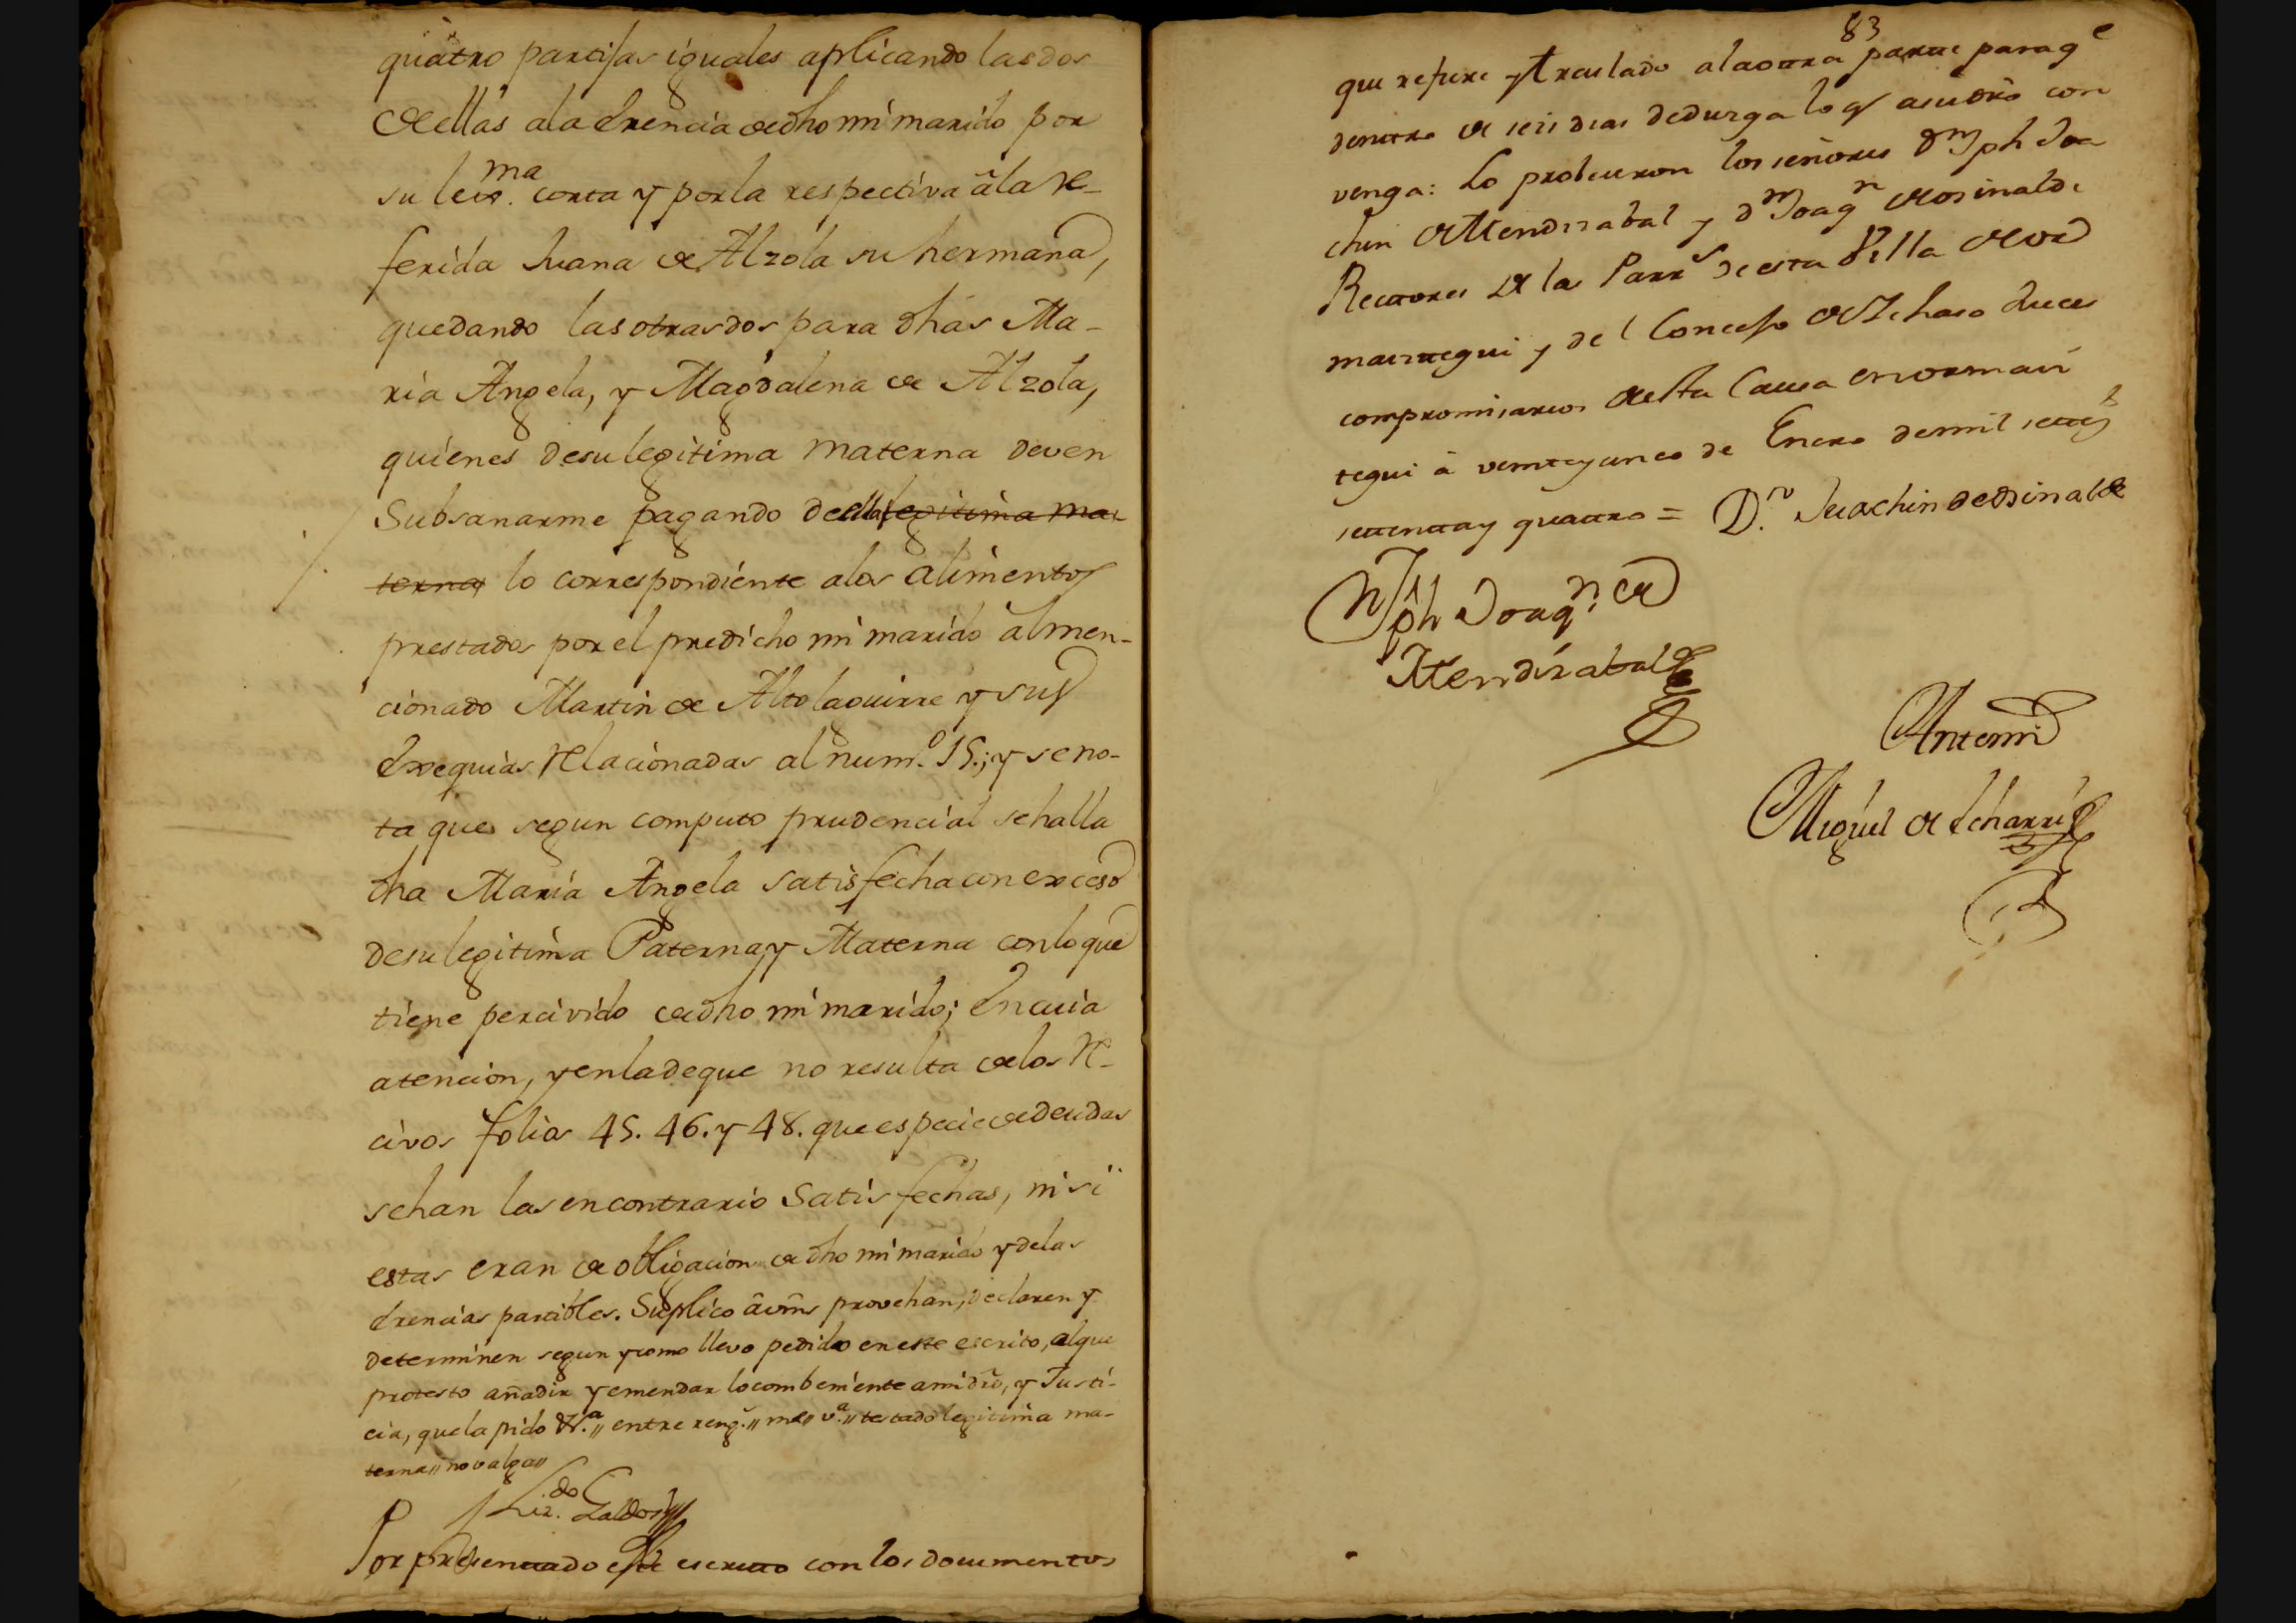 quatro partijas iguales aplicando las dos
de ellas ala Erencia de dho mi marido por
su lexma. corta y por la respectiva â la re-
ferida Juana de Alzola su hermana,
quedando las otras dos para dhas Ma-
ria Angela, y Magdalena de Alzola,
quienes de su legitima materna deven
Subsanarme pagando de ella legitima ma-
terna, lo correspondiente a los alimentos
prestados por el predicho mi marido al men-
cionado Martin de Altolaguirre y sus
Exequias relacionadas al num.o 15.; y se no-
ta que segun computo prudencial se halla
dha Maria Angela satisfecha con exceso
de su legitima Paterna, y Materna con lo que
tiene percivido de dho mi marido; En cuia
atencion, y en la de que no resulta de los re-
civos folios 45. 46. y 48. que especie de deudas
se han las en contrario Satisfechas, ni si
estas eran de obligacion de dho mi marido y de las
Erencias partibles. Suplico â vms provehan, declaren y
determinen segun y como llevo pedido en este escrito, al que
protesto añadir y emendar lo combeniente a mi dro, y Justi-
cia, que la pido &.a,, entre reng.,, ma,, v.a,, testado legitima ma-
terna,, no valga,,
Liz.do Galdos
Por presentado este escrito con los documentos
83
que refiere y traslado a la otra parte para q e
dentro de seis dias deduzga lo q a su dro con
venga: Lo proveieron los señores Dn Jph Joa
chin de Mendizabal y Dn Joaqn de Osinalde
Rectores de la Parrs de esta Villa de Vord
maiztegui y del Concejo de Ichaso Jueces
compromisarios de esta Causa en ormaiz
tegui â veinte y cinco de Enero de mil sett.s
settenta y quattro = D.n Juachin de Osinalde
Dn Jph Joaqn. de
Mendizabal
Antemi
Miguel de Echarri